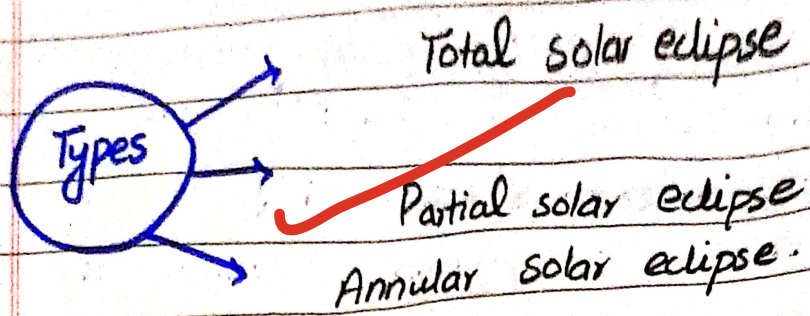 Total solar eclipse
Types
Partial solar eclipse
Annular solar eclipse.